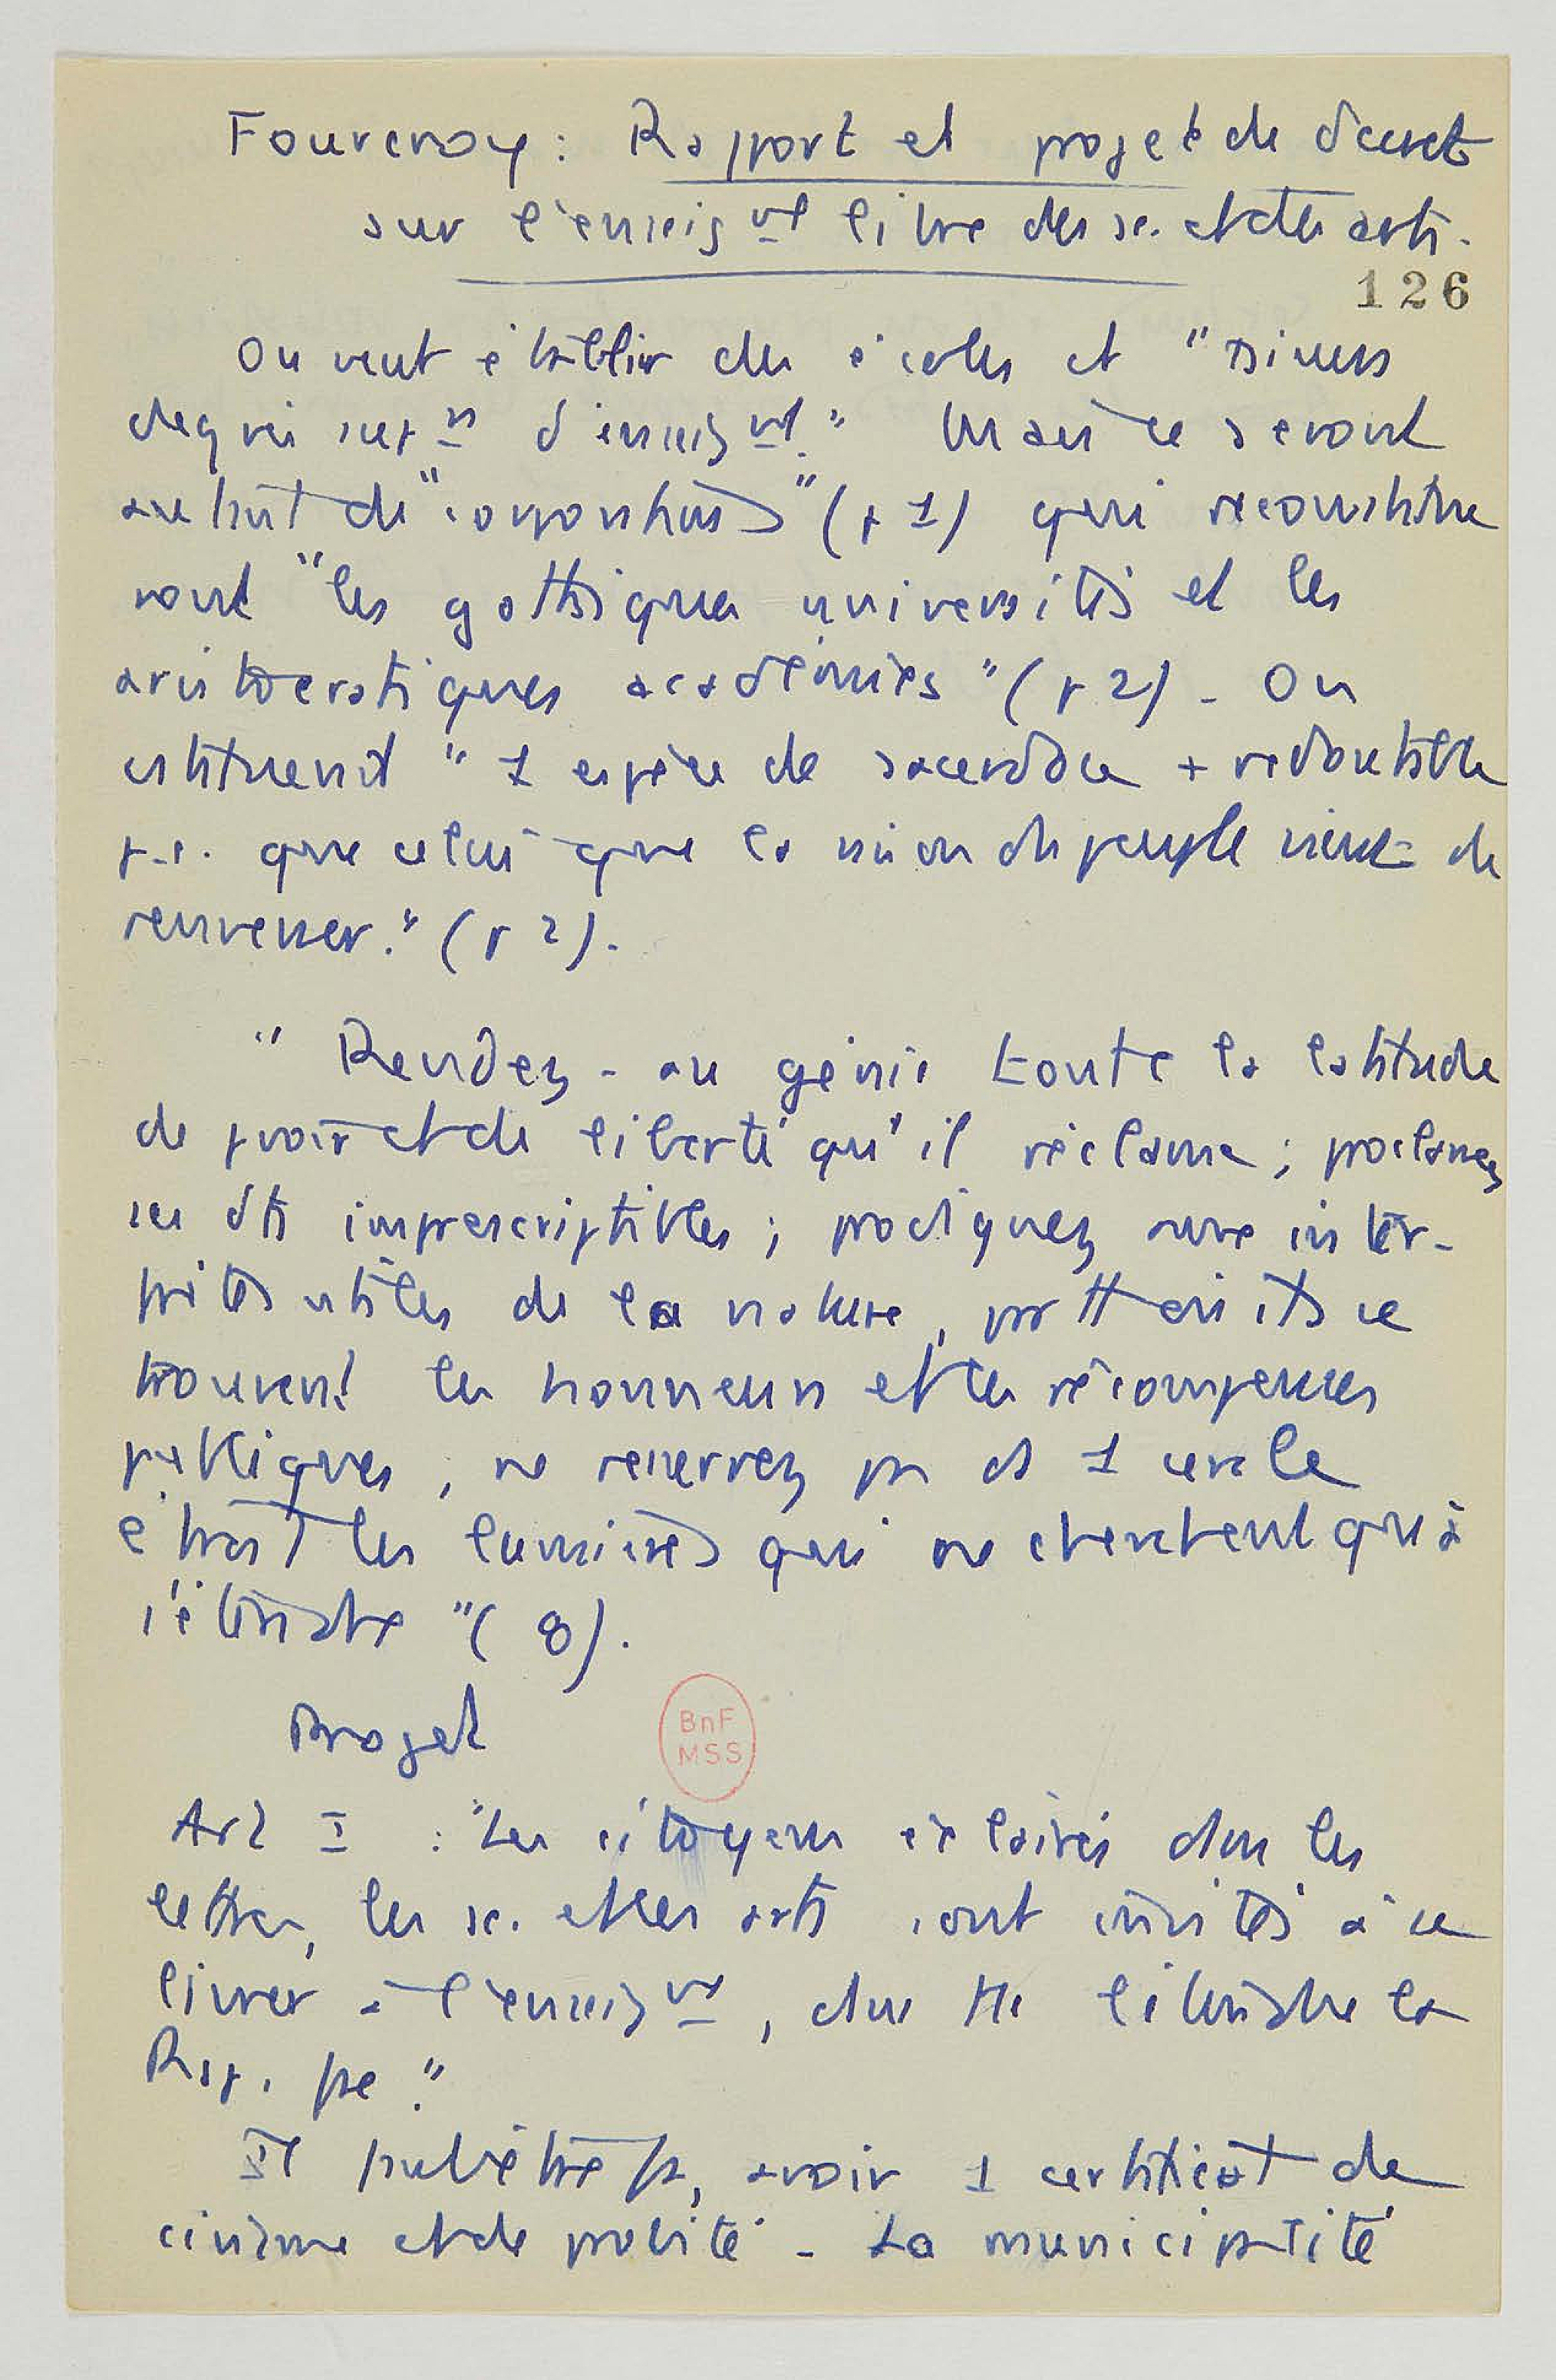 Fourcroy : Rapport et projet de décret
sur l'enseigᵗ libre des sc. et des arts.
126
On veut établir des écoles et "divers
degrés supʳˢ d'enseigᵗ." Mais ce seront
autant de "corporations" (p 1) qui reconstitue
ront "les gothiques universités et les
aristocratiques académies" (p 2) - On
"1 espèce de sacerdoce + redoutable
p.ê. que celui que la raison du peuple vient de
renverser." (p 2).
"Rendez - au génie toute la latitude
de pvoir et de liberté qu'il réclame ; proclamez
ses dts imprescriptibles ; prodiguez aux inter-
prètes utiles de la nature, où ils se
trouvent les honneurs et les récompenses
publiques ; ne resserrez pas ds 1 cercle
étroit les lumières qui ne cherchent qu'à
s'étendre" ( 8).
Projet
Art I : "Les citoyens éclairés dans les
lettres, les sc. et les arts sont invités à se
livrer à l'enseigᵗ, dans tte l'étendue de la
Rép. fse."
Il faut être fs, avoir 1 certificat de
civisme et de probité - La municipalité
BnF
MSS